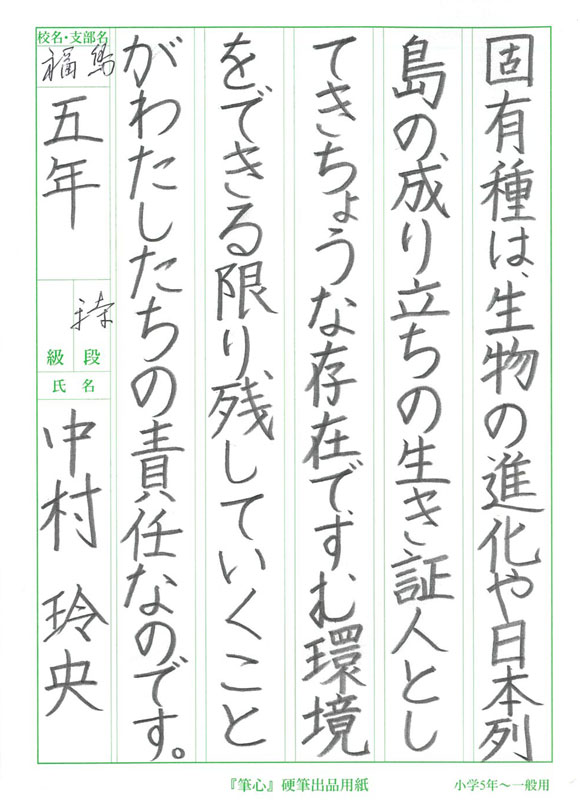 固有種は、生物の進化や日本列
島の、成り立ちの生き証人とし
てきちょうな存在です。む環境
をできる限り、残していくこと
がわたしたちの責任なのです。
校名・支部名
福島
五年
級 段
氏名
中村 玲央
『筆心』硬筆出品用紙
小学5年〜一般用